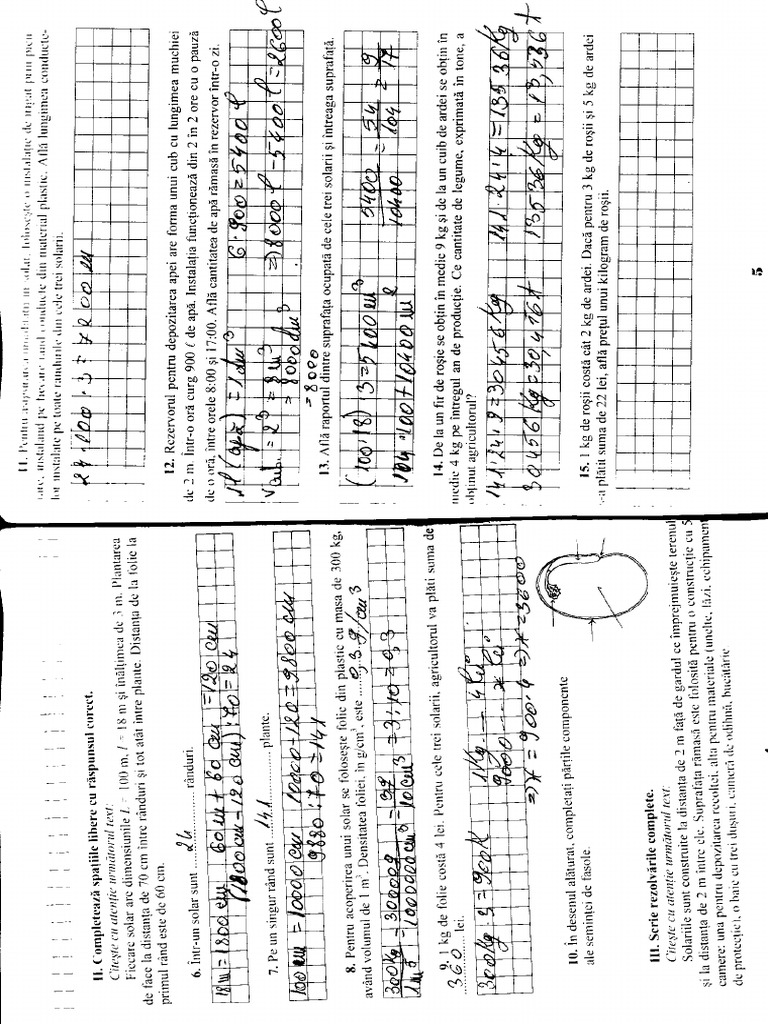 II. Completează spațiile libere cu răspunsul corect.
Citește cu atenție următorul text:
Fiecare solar are dimensiunile L = 100 m, l = 18 m și înălțimea de 3 m. Plantarea
de face la distanța de 70 cm între rânduri și tot atât între plante. Distanța de la folie la
primul rând este de 60 cm.
6. Într-un solar sunt 24 rânduri.
18 m = 1800 cm 60 cm + 60 cm = 120 cm
(1800 cm - 120 cm) : 70 = 24
7. Pe un singur rând sunt 141 plante.
100 m = 10000 cm 10000 - 120 = 9800 cm
9880 : 70 = 141
8. Pentru acoperirea unui solar se folosește folie din plastic cu masa de 300 kg,
având volumul de 1 m³. Densitatea foliei, în g/cm³, este 0,3 g/cm³
300 kg / 1 m³ = 300000 g / 1000000 cm³ = 3 g / 10 cm³ = 3 : 10 = 0,3
9. 1 kg de folie costă 4 lei. Pentru cele trei solarii, agricultorul va plăti suma de
360 lei.
300 kg 3 = 900 K 1 Kg ... 4 lei
9000 ... x lei
=> x = 900 · 4 => x = 3600
10. În desenul alăturat, completați părțile componente
ale seminței de fasole.
III. Scrie rezolvările complete.
Citește cu atenție următorul text:
Solariile sunt construite la distanța de 2 m față de gardul ce împrejmuiește terenul
și la distanța de 2 m între ele. Suprafața rămasă este folosită pentru o construcție cu 5
camere: una pentru depozitarea recoltei, alta pentru materiale (unelte, lăzi, echipament
de protecție), o baie cu trei dușuri, cameră de odihnă, bucătărie
11. Pentru
instalând pe fiecare rând conducte din material plastic. Află lungimea conducte-
lor instalate pe toate rândurile din cele trei solarii.
24 · 100 · 3 = 7200 m
12. Rezervorul pentru depozitarea apei are forma unui cub cu lungimea muchiei
de 2 m. Într-o oră curg 900 ℓ de apă. Instalația funcționează din 2 în 2 ore cu o pauză
de o oră, între orele 8:00 și 17:00. Află cantitatea de apă rămasă în rezervor într-o zi.
1 ℓ (apă) = 1 dm³ 6 · 900 = 5400 ℓ
Vcub = 2³ = 8 m³ => 8000 ℓ - 5400 ℓ = 2600 ℓ
= 8000 dm³
= 8000
13. Află raportul dintre suprafața ocupată de cele trei solarii și întreaga suprafață.
(100 · 18) · 3 = 5400 m² 5400 / 10400 = 54 / 104 = 9 / 17
104 · 100 = 10400 m²
14. De la un fir de roșie se obțin în medie 9 kg și de la un cuib de ardei se obțin în
medie 4 kg pe întregul an de producție. Ce cantitate de legume, exprimată în tone, a
obținut agricultorul?
141 · 24 · 9 = 30456 Kg 141 · 24 · 4 = 13536 Kg
30456 Kg = 30,416 t 13536 Kg = 13,536 t
15. 1 kg de roșii costă cât 2 kg de ardei. Dacă pentru 3 kg de roșii și 5 kg de ardei
s-a plătit suma de 22 lei, află prețul unui kilogram de roșii.
5